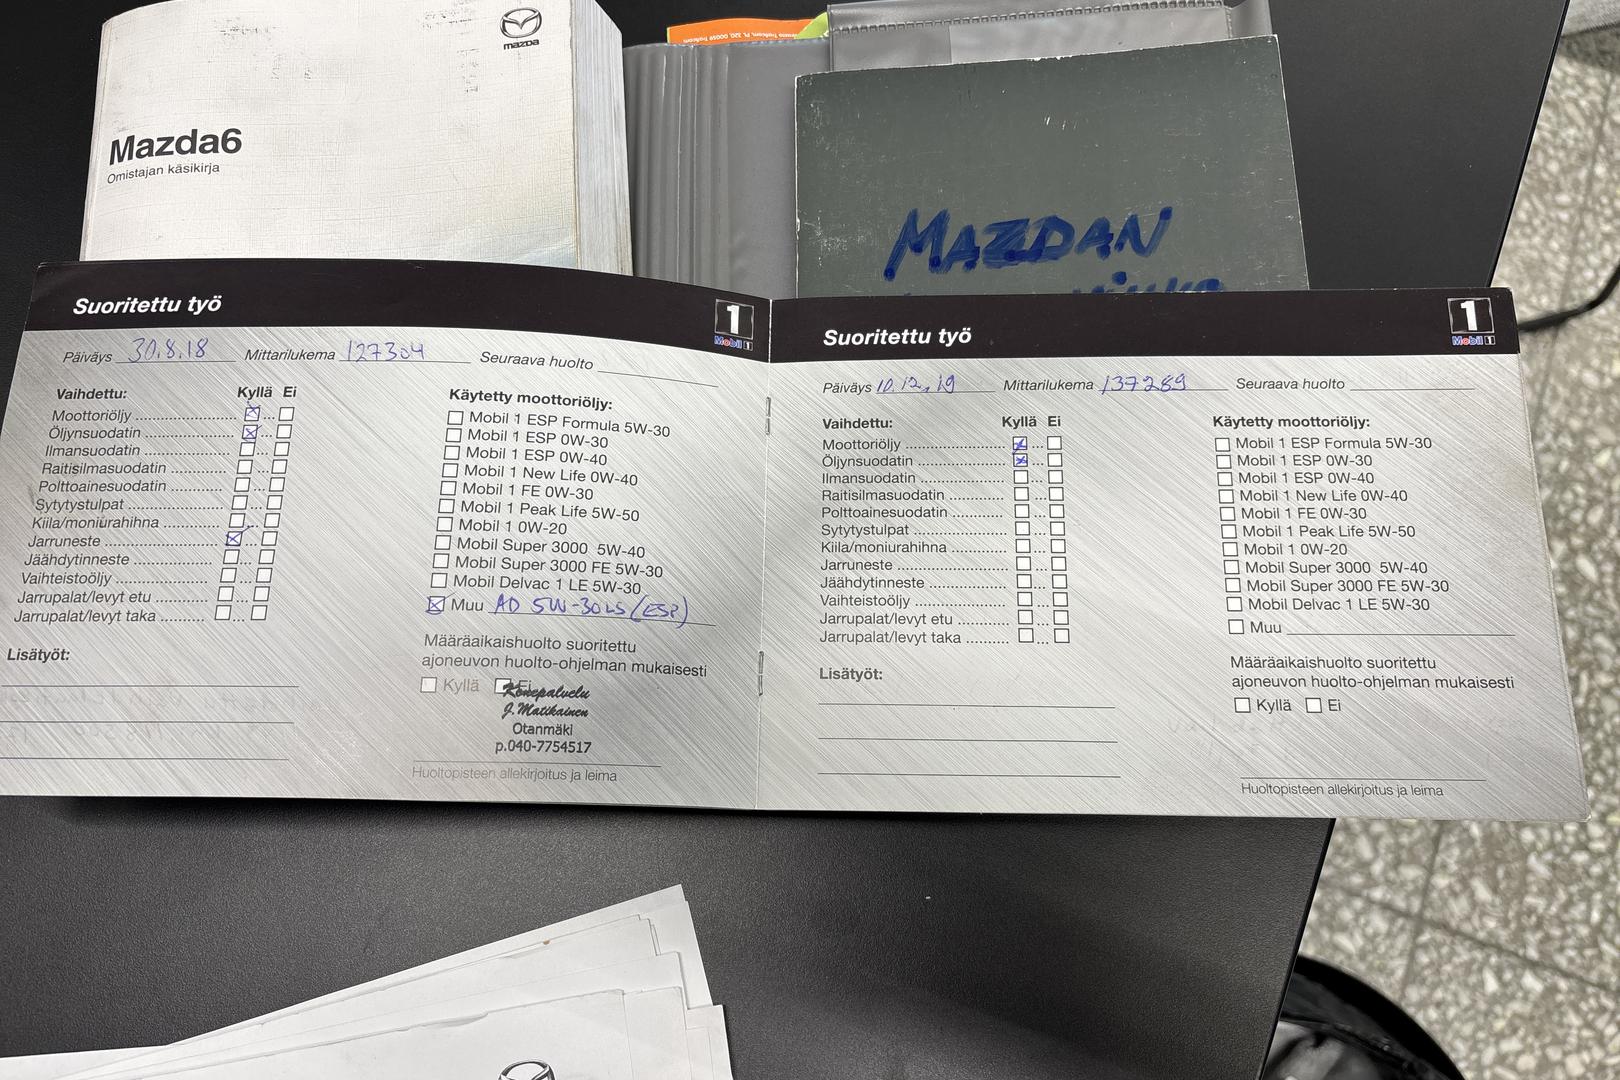 mazda
Mazda6
Omistajan käsikirja
MAZDAN
Suoritettu työ
1
Mobil 1
Päiväys 30.8.18 Mittarilukema 127304 Seuraava huolto
Vaihdettu: Kyllä Ei
Moottoriöljy
Öljynsuodatin
Ilmansuodatin
Raitisilmasuodatin
Polttoainesuodatin
Sytytystulpat
Kiila/moniurahihna
Jarruneste
Jäähdytinneste
Vaihteistoöljy
Jarrupalat/levyt etu
Jarrupalat/levyt taka
Lisätyöt:
Käytetty moottoriöljy:
Mobil 1 ESP Formula 5W-30
Mobil 1 ESP 0W-30
Mobil 1 ESP 0W-40
Mobil 1 New Life 0W-40
Mobil 1 FE 0W-30
Mobil 1 Peak Life 5W-50
Mobil 1 0W-20
Mobil Super 3000 5W-40
Mobil Super 3000 FE 5W-30
Mobil Delvac 1 LE 5W-30
Muu AD 5W-30LS (ESP)
Määräaikaishuolto suoritettu
ajoneuvon huolto-ohjelman mukaisesti
Kyllä Ei
Konepalvelu
J. Matikainen
Otanmäki
p.040-7754517
Huoltopisteen allekirjoitus ja leima
Suoritettu työ
1
Mobil 1
Päiväys 10.12.19 Mittarilukema 137289 Seuraava huolto
Vaihdettu: Kyllä Ei
Moottoriöljy
Öljynsuodatin
Ilmansuodatin
Raitisilmasuodatin
Polttoainesuodatin
Sytytystulpat
Kiila/moniurahihna
Jarruneste
Jäähdytinneste
Vaihteistoöljy
Jarrupalat/levyt etu
Jarrupalat/levyt taka
Lisätyöt:
Käytetty moottoriöljy:
Mobil 1 ESP Formula 5W-30
Mobil 1 ESP 0W-30
Mobil 1 ESP 0W-40
Mobil 1 New Life 0W-40
Mobil 1 FE 0W-30
Mobil 1 Peak Life 5W-50
Mobil 1 0W-20
Mobil Super 3000 5W-40
Mobil Super 3000 FE 5W-30
Mobil Delvac 1 LE 5W-30
Muu
Määräaikaishuolto suoritettu
ajoneuvon huolto-ohjelman mukaisesti
Kyllä Ei
Huoltopisteen allekirjoitus ja leima